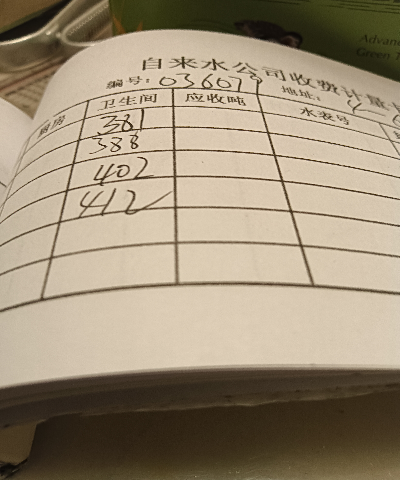 Advan
Green T
自来水公司收费计量
编号: 036079 地址:
厨房 卫生间 应收吨 水表号
381
388
402
412